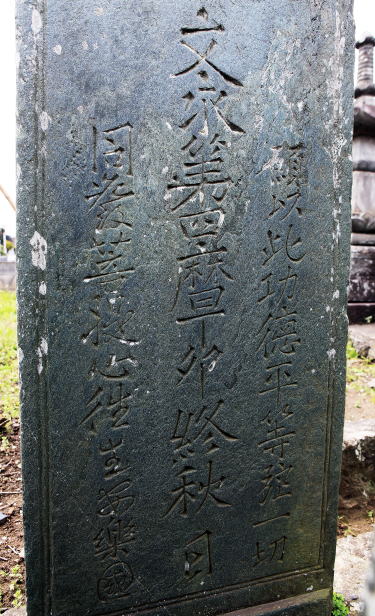 願以此功德平等施一切
文永第四曆丁卯終秋日
同發菩提心往生安樂国